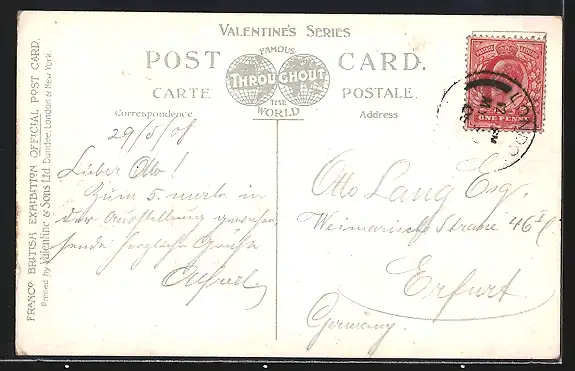 VALENTINE'S SERIES
POST CARD.
FAMOUS
THROUGHOUT
THE
WORLD
CARTE POSTALE.
Correspondence. Address
FRANCO BRITISH EXHIBITION OFFICIAL POST CARD.
Printed by Valentine & Sons Ltd. Dundee, London & New York
29/5/08
Lieber Otto!
Zum 5. male in
der Ausstellung gewesen,
sende herzliche Grüße
Alfred
Otto Lang Esq.
Weimarische Strasse 46
Erfurt
Germany.
LONDO
ONE PENNY